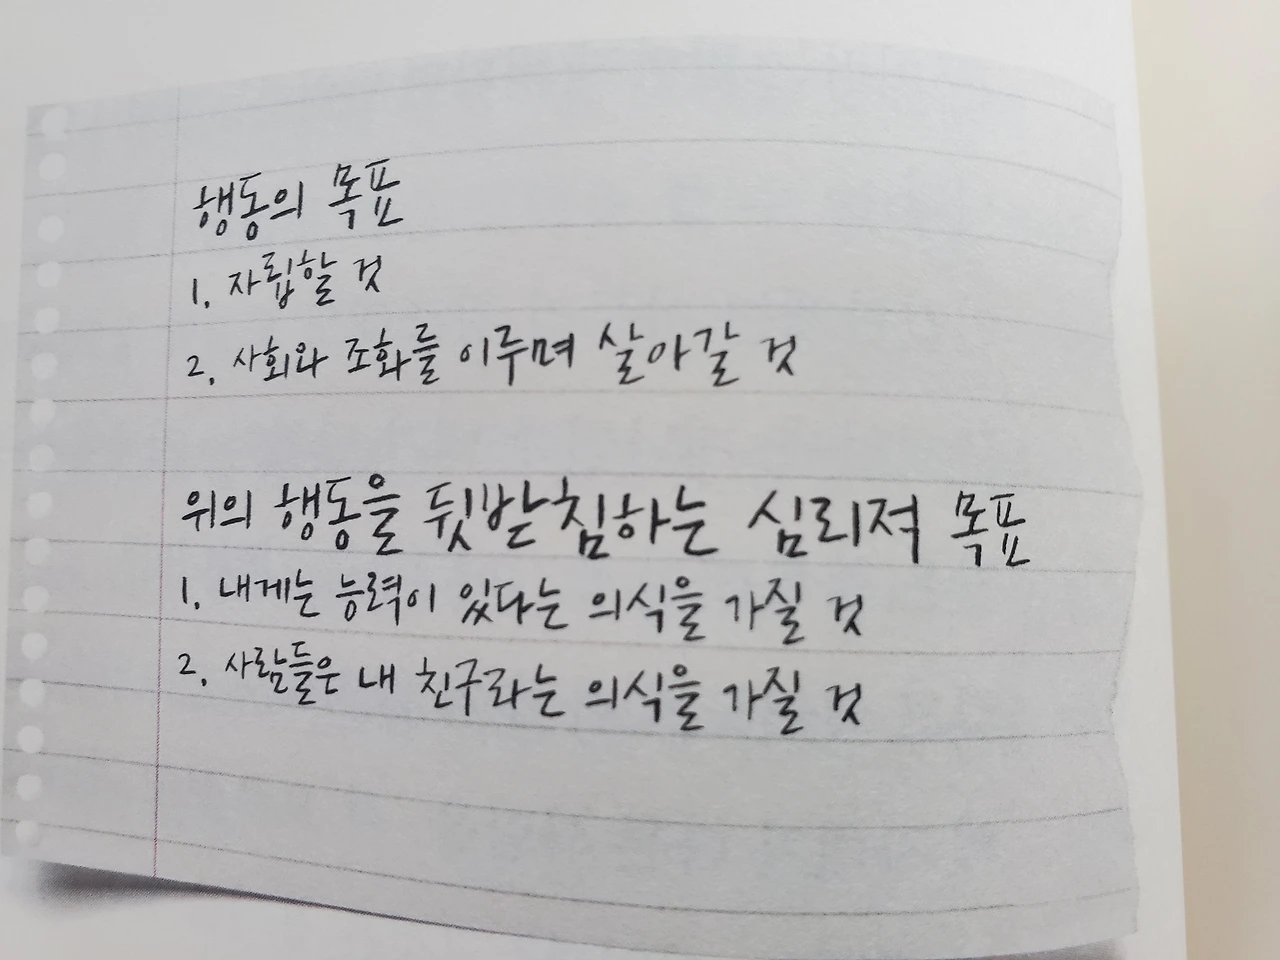 행동의 목표
1. 자립할 것
2. 사회와 조화를 이루며 살아갈 것
위의 행동을 뒷받침하는 심리적 목표
1. 내게는 능력이 있다는 의식을 가질 것
2. 사람들은 내 친구라는 의식을 가질 것